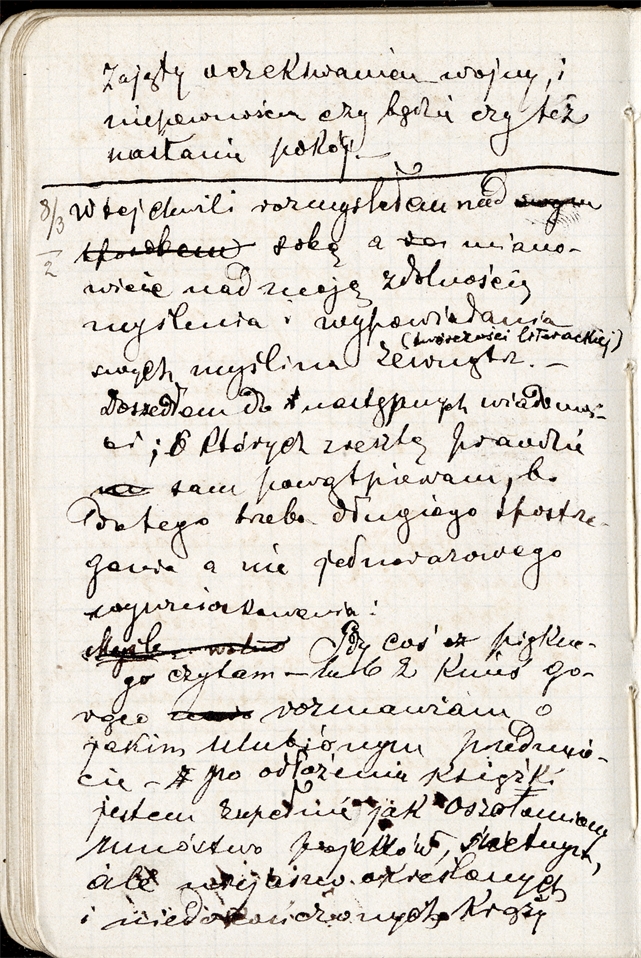 zajęty oczekiwaniem wojny, i
niepewnością czy będzie czy też
nastanie pokój. —
8/3 W tej chwili rozmyślałem nad swym
2 sposobem sobą a miano-
wicie nad moją zdolnością
myślenia i wypowiadania
(twórczości literackiej)
swych myśli na zewnątrz. —
Doszedłem do następnych wiadomoś-
ci; o których zresztą prawdzie
sam powątpiewam, bo
Do tego trzeba długiego spostrze-
gania a nie jednorazowego
wywnioskowania:
Myślę wolno Gdy coś pięknie-
go czytam — lub z kimś go-
rąco rozmawiam o
jakim ulubionym przedmio-
cie — po odłożeniu książki
jestem zupełnie jak oszołomiony
mnóstwo pojęć, świetnych,
ale niejasno określonych
i niedokończonych krąży